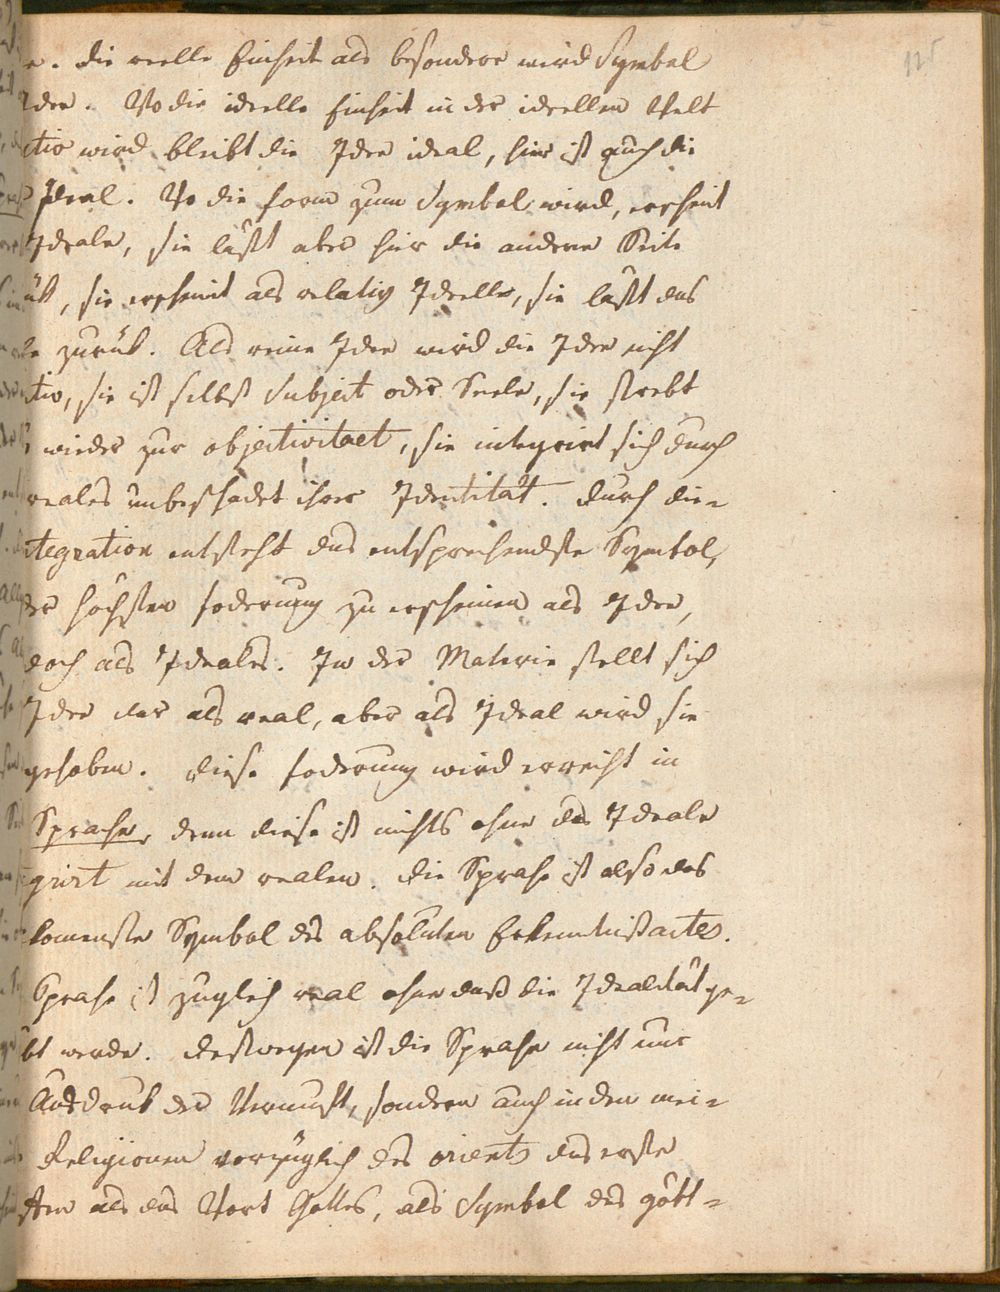 125
e. die reelle Einheit als besondere wird Symbol
Idee. Wo die ideelle Einheit in der ideellen Welt
ctiv wird bleibt die Idee ideal, hier ist auch die
Ideal. Wo die Form zum Symbol wird, erscheint
Ideale, sie läßt aber hier die andere Seite
ük, sie erscheint als relativ Ideelle, sie läßt das
le zurük. Als reine Idee wird die Idee nicht
ctiv, sie ist selbst Subject oder Seele, sie strebt
wieder zur objectivitaet, sie integrirt sich durch
reales unbeschadet ihrer Identität. Durch die-
ntegration entsteht das entsprechendste Symbol,
der höchsten foderung zu erscheinen als Idee,
doch als Ideales. In der Materie stellt sich
Idee dar als real, aber als Ideal wird sie
gehoben. diese foderung wird erreicht in
Sprache, denn diese ist nichts ohne das Ideale
grirt mit dem realen. die Sprache ist also das
lkomenste Symbol des absoluten Erkenntnißactes.
Sprache ist zugleich real ohne daß die Idealität ge-
bt werde. deswegen ist die Sprache nicht nur
Ausdruk der Vernunft, sondern auch in den mei-
Religionen vorzüglich des orients das erste
als das Wort Gottes, als Symbol des gött-